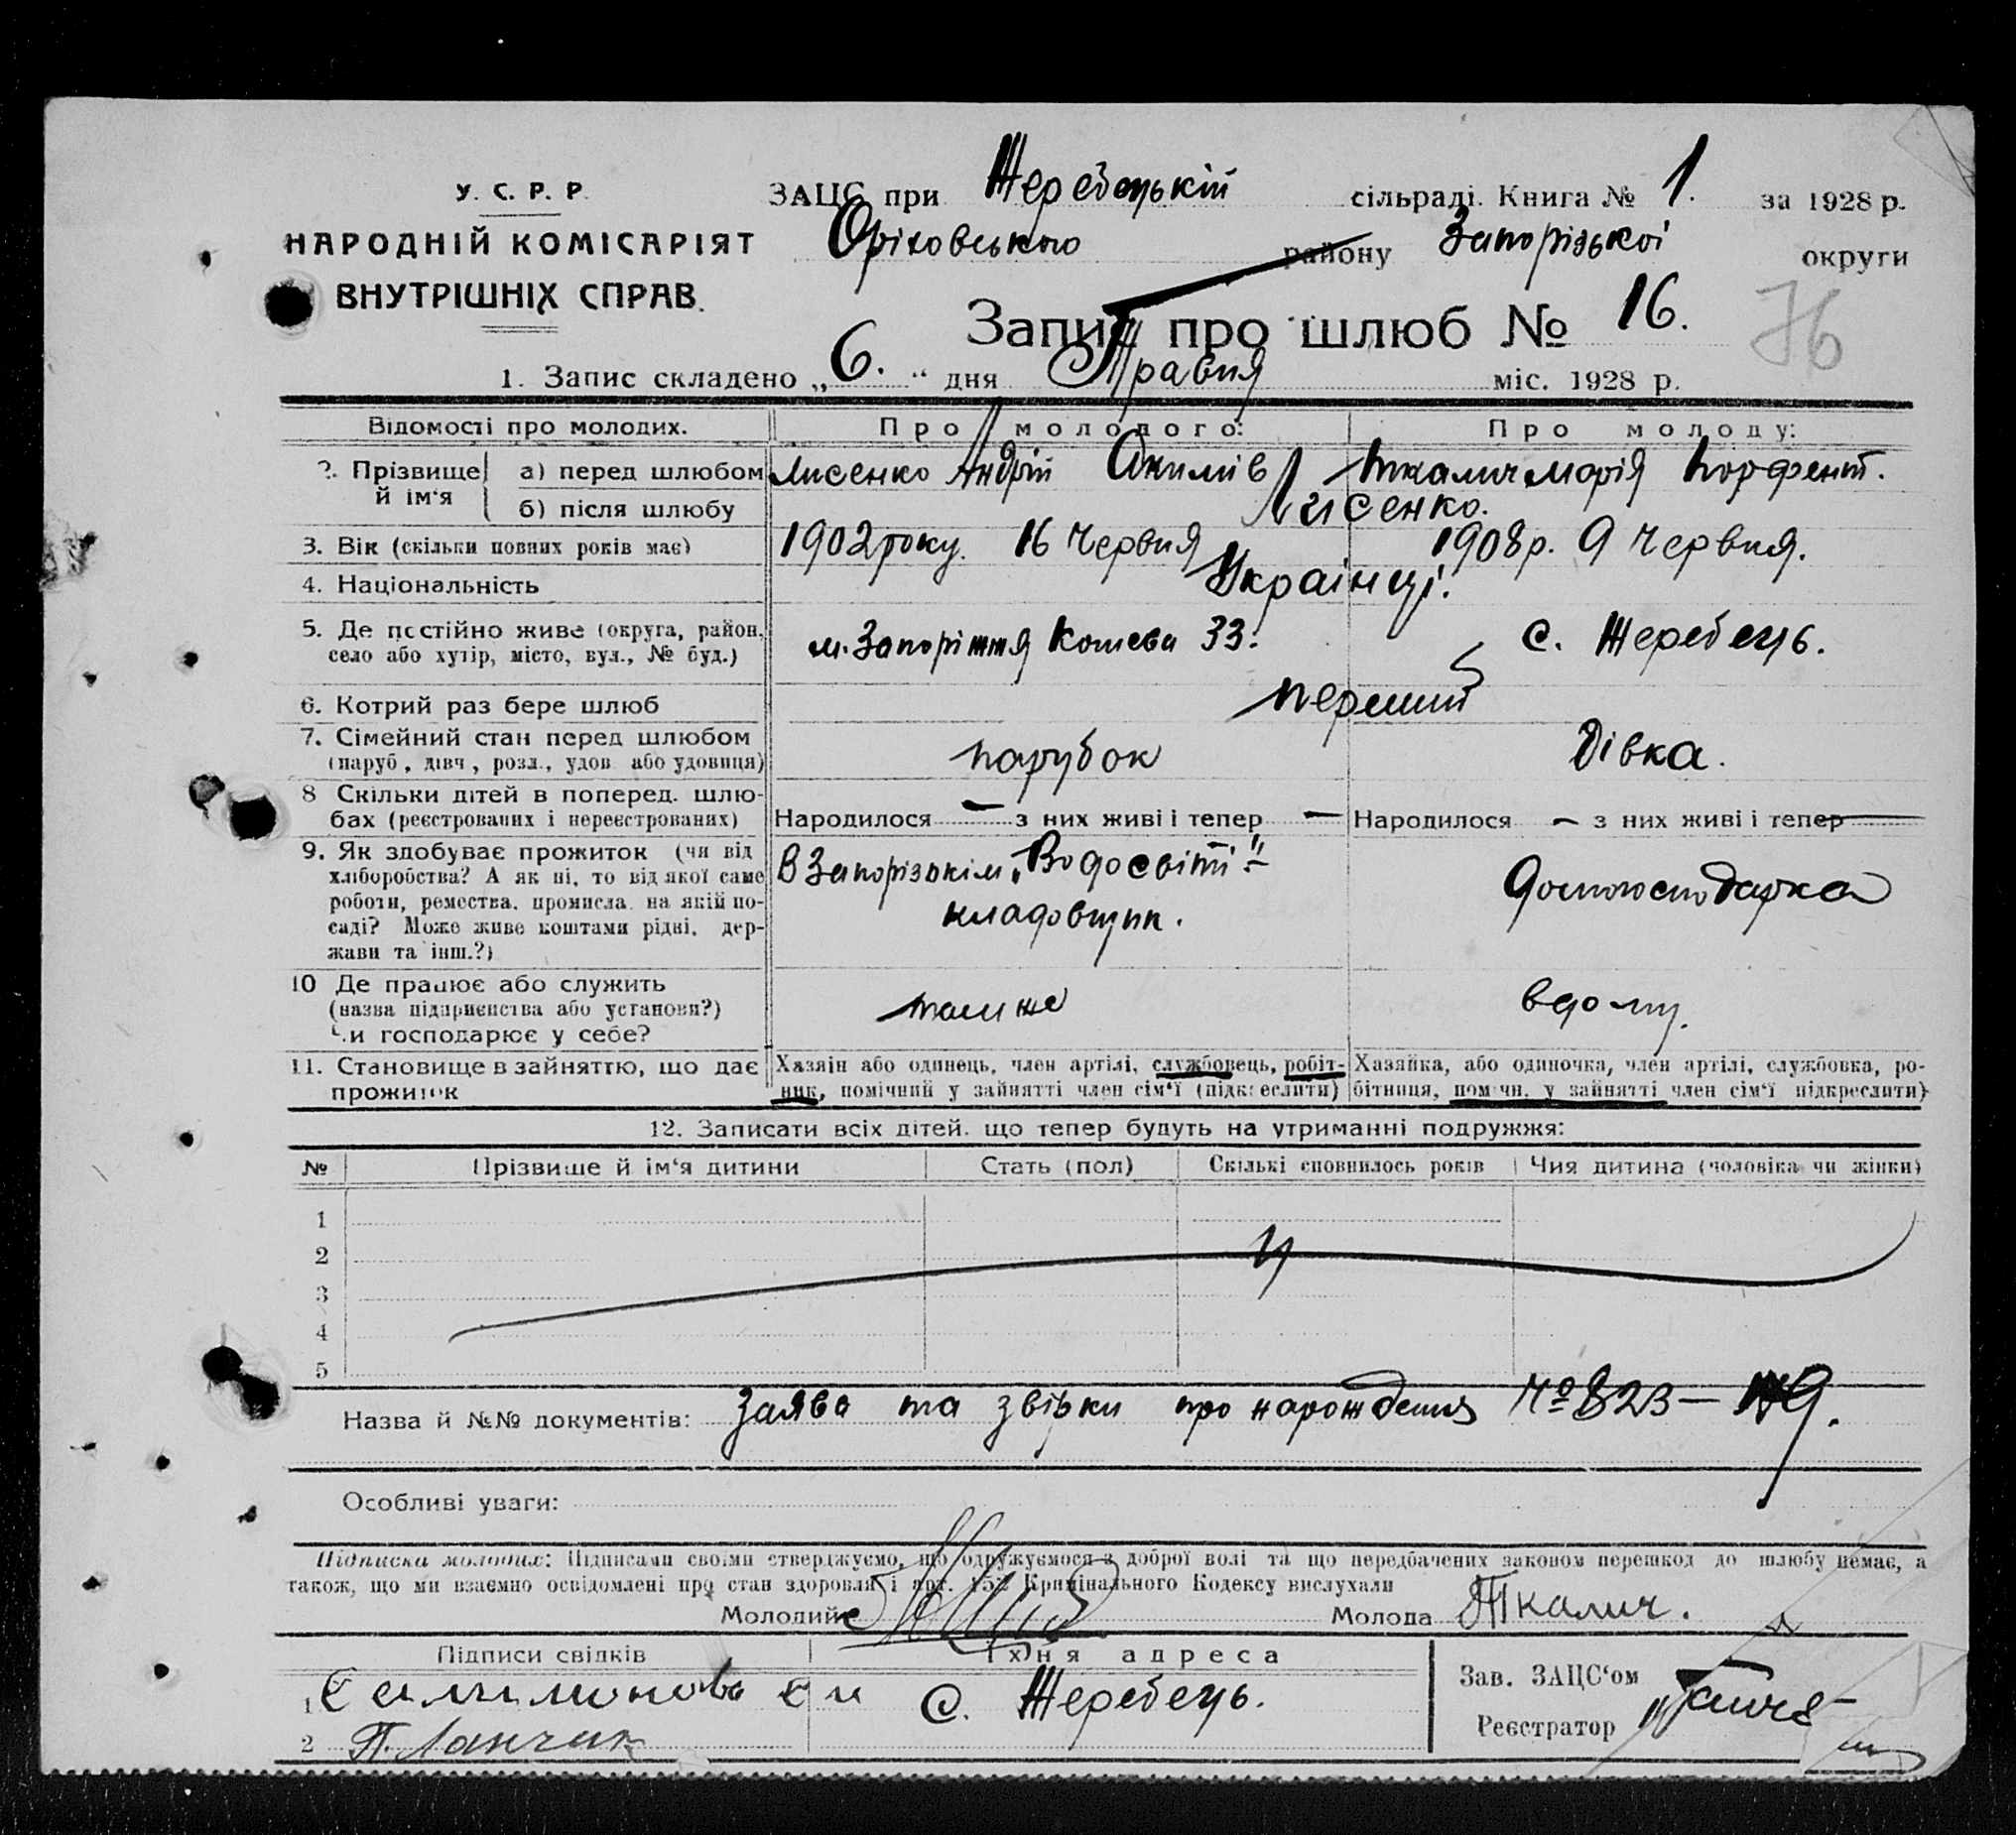 У. С. Р. Р.
НАРОДНІЙ КОМІСАРІЯТ
ВНУТРІШНІХ СПРАВ.
ЗАЦС при Жеребецькій сільраді. Книга № 1. за 1928 р.
Оріховського району Запорізької округи
Запис про шлюб № 16.
76
1. Запис складено „6.“ дня Травня міс. 1928 р.
Відомості про молодих.
Про молодого:
Про молоду:
2. Прізвище й ім‘я
а) перед шлюбом
Лисенко Андрій Акимів
Ткалич Марія Порфент.
б) після шлюбу
Лисенко.
3. Вік (скільки повних років має)
1902 року. 16 Червня
1908 р. 9 Червня.
4. Національність
Українці.
5. Де постійно живе (округа, район, село або хутір, місто, вул., № буд.)
м. Запоріжжя Кошева 33.
с. Жеребець.
6. Котрий раз бере шлюб
перший
7. Сімейний стан перед шлюбом
(паруб., дівч., розл., удов. або удовиця)
парубок
Дівка.
8 Скільки дітей в поперед. шлю-
бах (реєстрованих і нереєстрованих)
Народилося — з них живі і тепер —
Народилося — з них живі і тепер —
9. Як здобуває прожиток (чи від
хліборобства? А як ні, то від якої саме
роботи, ремества, промисла, на якій по-
саді? Може живе коштами рідні, дер-
жави та інш.?)
В Запорізькім „Водосвіті“ –
кладовщик.
домогосподарка
10 Де працює або служить
(назва підприємства або установи?)
Чи господарює у себе?
там же
вдому.
11. Становище в зайняттю, що дає
прожиток
Хазяїн або одинець, член артілі, службовець, робіт-
ник, помічний у зайнятті член сім‘ї (підкреслити)
Хазяйка, або одиночка, член артілі, службовка, ро-
бітниця, помічн. у зайнятті член сім‘ї підкреслити)
12. Записати всіх дітей, що тепер будуть на утриманні подружжя:
№ Прізвище й ім‘я дитини Стать (пол) Скількі сповнилось років Чия дитина (чоловіка чи жінки)
1
2
3
4
5
Назва й №№ документів: Заява та звірки про нарождення № 823 –
Особливі уваги:
Підписка молодих: Підписами своїми стверджуємо, що одружуємося з доброї волі та що передбачених законом перешкод до шлюбу немає, а
також, що ми взаємно освідомлені про стан здоровля і арт. 152 Кримінального Кодексу вислухали
Молодий
Молода Ткалич.
Підписи свідків
Їхня адреса
1
с. Жеребець.
2 П. Ланчак
Зав. ЗАЦС‘ом
Реєстратор